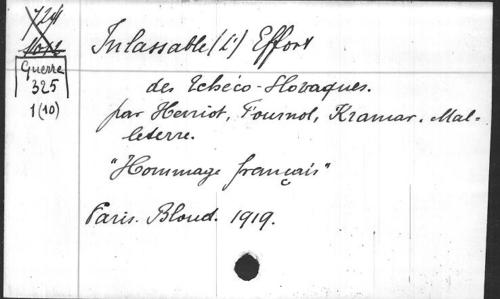 Inlassable (L') Effort
des Tchéco-Slovaques.
par Herriot, Fournol, Kramar, Mal-
leterre.
"Hommage français"
Paris. Bloud. 1919.
Guerre
325
1(10)